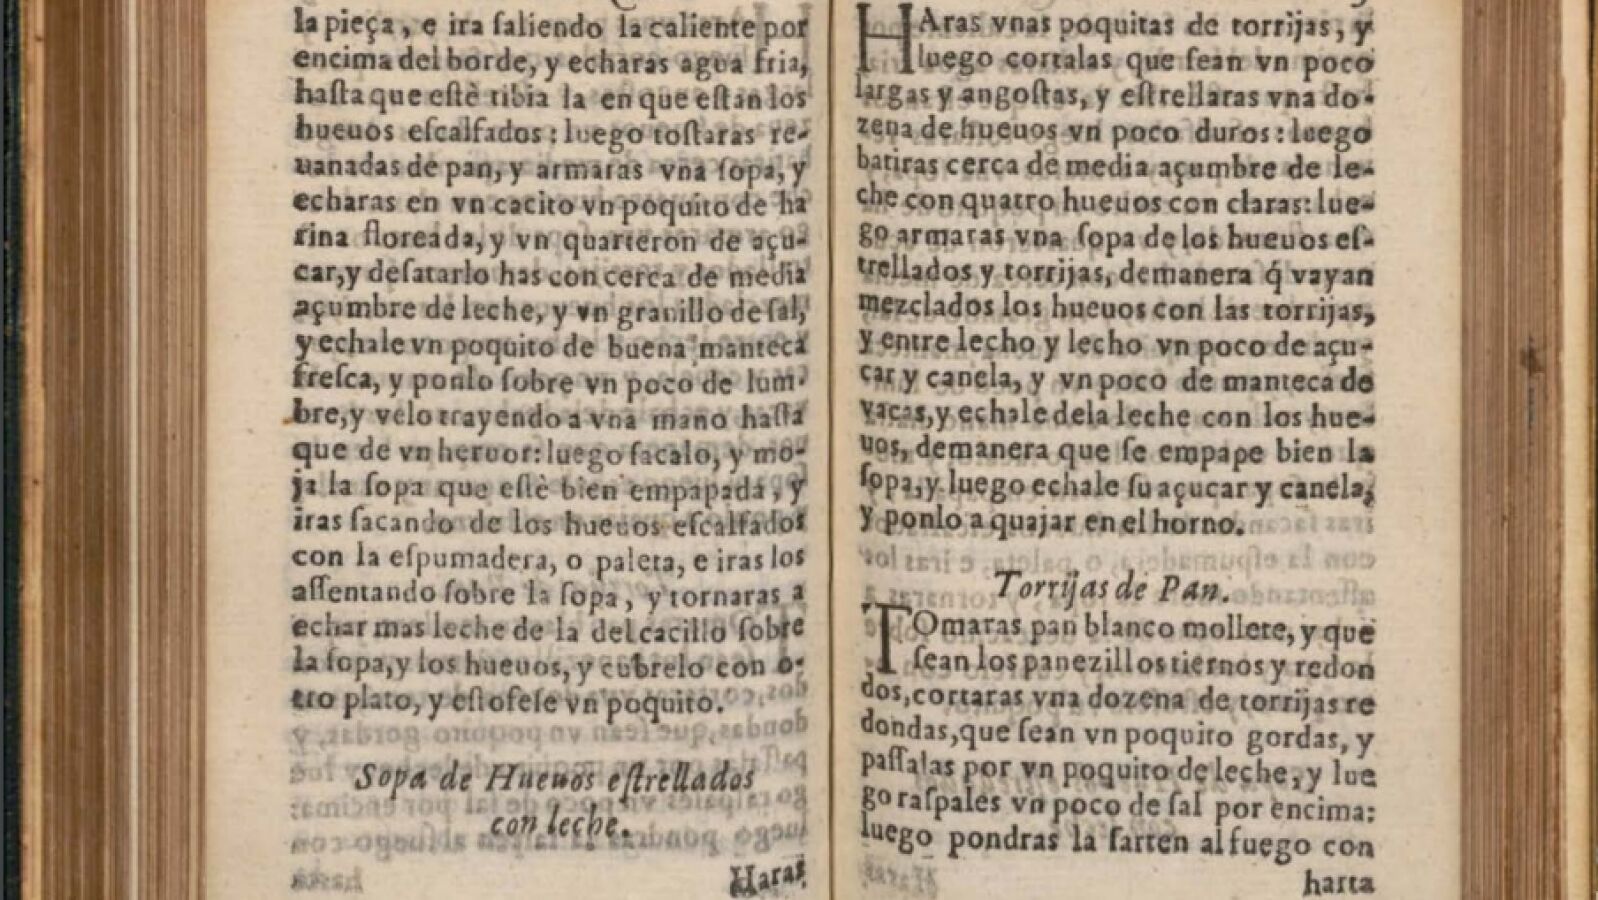 la pieça, e ira ſaliendo la caliente por
encima del borde, y echaras agua fria,
haſta que eſtè tibia la en que eſtan los
hueuos eſcalfados: luego toſtaras re-
uanadas de pan, y armaras vna ſopa, y
echaras en vn cacito vn poquito de ha
rina floreada, y vn quarteron de açu-
car, y deſatarlo has con cerca de media
açumbre de leche, y vn granillo de ſal,
y echale vn poquito de buena manteca
freſca, y ponlo ſobre vn poco de lum-
bre, y velo trayendo a vna mano haſta
que de vn heruor: luego ſacalo, y mo-
ja la ſopa que eſtè bien empapada, y
iras ſacando de los hueuos eſcalfados
con la eſpumadera, o paleta, e iras los
aſſentando ſobre la ſopa, y tornaras a
echar mas leche de la del cacillo ſobre
la ſopa, y los hueuos, y cubrelo con o-
tro plato, y eſtofeſe vn poquito.
Sopa de Hueuos eſtrellados
con leche.
Haras
HAras vnas poquitas de torrijas, y
luego cortalas que ſean vn poco
largas y angoſtas, y eſtrellaras vna do-
zena de hueuos vn poco duros: luego
batiras cerca de media açumbre de le-
che con quatro hueuos con claras: lue-
go armaras vna ſopa de los hueuos eſ-
trellados y torrijas, demanera q̃ vayan
mezclados los hueuos con las torrijas,
y entre lecho y lecho vn poco de açu-
car y canela, y vn poco de manteca de
vacas, y echale dela leche con los hue-
uos, demanera que ſe empape bien la
ſopa, y luego echale ſu açucar y canela,
y ponlo a quajar en el horno.
Torrijas de Pan.
TOmaras pan blanco mollete, y que
ſean los panezillos tiernos y redon
dos, cortaras vna dozena de torrijas re
dondas, que ſean vn poquito gordas, y
paſſalas por vn poquito de leche, y lue
go raſpales vn poco de ſal por encima:
luego pondras la ſarten al fuego con
harta